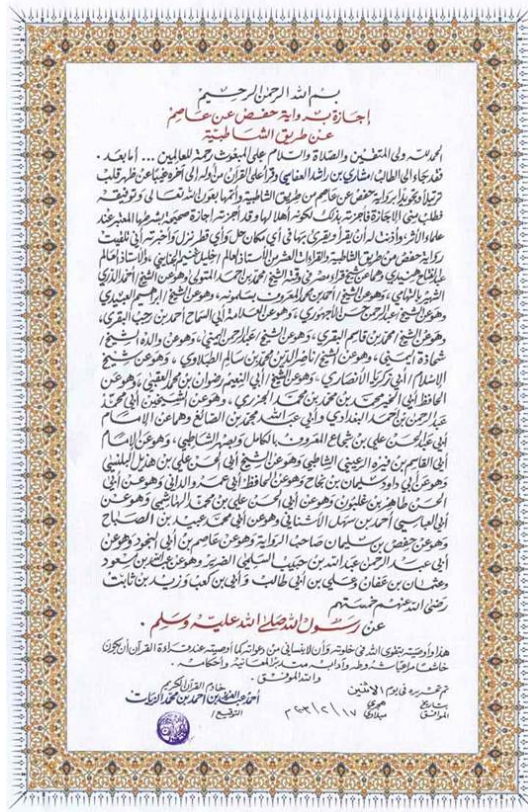 بسم الله الرحمن الرحيم
إجازة برواية حفص عن عاصم
عن طريق الشاطبية
الحمد لله ولي المتقين والصلاة والسلام على المبعوث رحمة للعالمين ... أما بعد .
فقد جاء إلي الطالب / مشاري بن راشد العفاسي وقرأ علي القرآن من أوله إلى آخره غيبًا عن ظهر قلب
ترتيلاً وتجويدًا برواية حفص عن عاصم من طريق الشاطبية وأتمها بعون الله تعالى وتوفيقه
فطلب مني الإجازة فأجزته بذلك لكونه أهلا لها وقد أجزته إجازة صحيحة بشرطها المعتبر عند
علماء الأثر، وأذنت له أن يقرأ ويقرئ بها في أي مكان حل وأي قطر نزل وأخبرته أني تلقيت
رواية حفص من طريق الشاطبية والقراءات العشر من الأستاذ العالم / خليل الجنايني، والأستاذ العالم
عبد الفتاح هنيدي وهما عن شيخ قراء مصر في وقته الشيخ / محمد بن أحمد المتولي وهو عن الشيخ / أحمد الدري
الشهير بالتهامي ، وهو عن الشيخ / أحمد بن محمد المعروف بسلمونه، وهو عن الشيخ / إبراهيم العبيدي
وهو عن الشيخ / عبد الرحمن بن حسن الأجهوري ، وهو عن العلامة أبي السماح أحمد بن رجب البقري،
وهو عن الشيخ / محمد بن قاسم البقري ، وهو عن الشيخ / عبد الرحمن اليمني ، وهو عن والده الشيخ /
شحاذة اليمني ، وهو عن الشيخ / ناصر الدين محمد بن سالم الطبلاوي ، وهو عن شيخ
الإسلام / أبي زكريا الأنصاري ، وهو عن الشيخ / أبي النعيم رضوان بن محمد العقبي ، وهو عن
الحافظ أبي الخير محمد بن محمد بن محمد الجزري ، وهو عن الشيخين أبي محمد
عبد الرحمن بن أحمد البغدادي وأبي عبد الله محمد بن الصائغ وهما عن الإمام
أبي الحسن علي بن شجاع المعروف بالكامل وبصهر الشاطبي ، وهو عن الإمام
أبي القاسم بن فيره الرعيني الشاطبي وهو عن الشيخ أبي الحسن علي بن هذيل البلنسي
وهو عن أبي داود سليمان بن نجاح وهو عن الحافظ أبي عمرو الداني وهو عن أبي
الحسن طاهر بن غلبون وهو عن أبي الحسن علي بن محمد الهاشمي وهو عن
أبي العباس أحمد بن سهل الأشناني وهو عن أبي محمد عبيد بن الصباح
وهو عن حفص بن سليمان صاحب الرواية وهو عن عاصم بن أبي النجود وهو عن
أبي عبد الرحمن عبد الله بن حبيب السلمي الضرير وهو عن عبد الله بن مسعود
وعثمان بن عفان وعلي بن أبي طالب وأبي بن كعب وزيد بن ثابت
رضي الله عنهم خمستهم
عن رسول الله صلى الله عليه وسلم .
هذا وأوصيته بتقوى الله في خلوته وأن لا ينساني من دعواته كما أوصيته عند قراءة القرآن أن يكون
خاشعًا مراعيًا شروطه وآدابه متدبرًا لمعانيه وأحكامه .
والله الموفق .
تم تحريره في يوم الاثنين
بتاريخ هجري
الموافق ميلادي
خادم القرآن الكريم
أحمد عبد العزيز بن أحمد بن محمد الزيات
التوقيع /